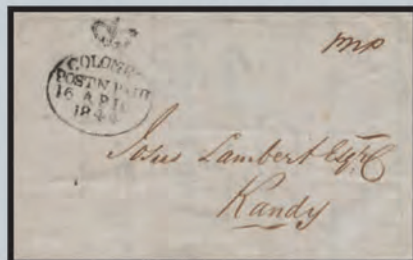 COLOMBO
POST N PAID
16 APL
1844
Josus Lambert Esqre
Kandy